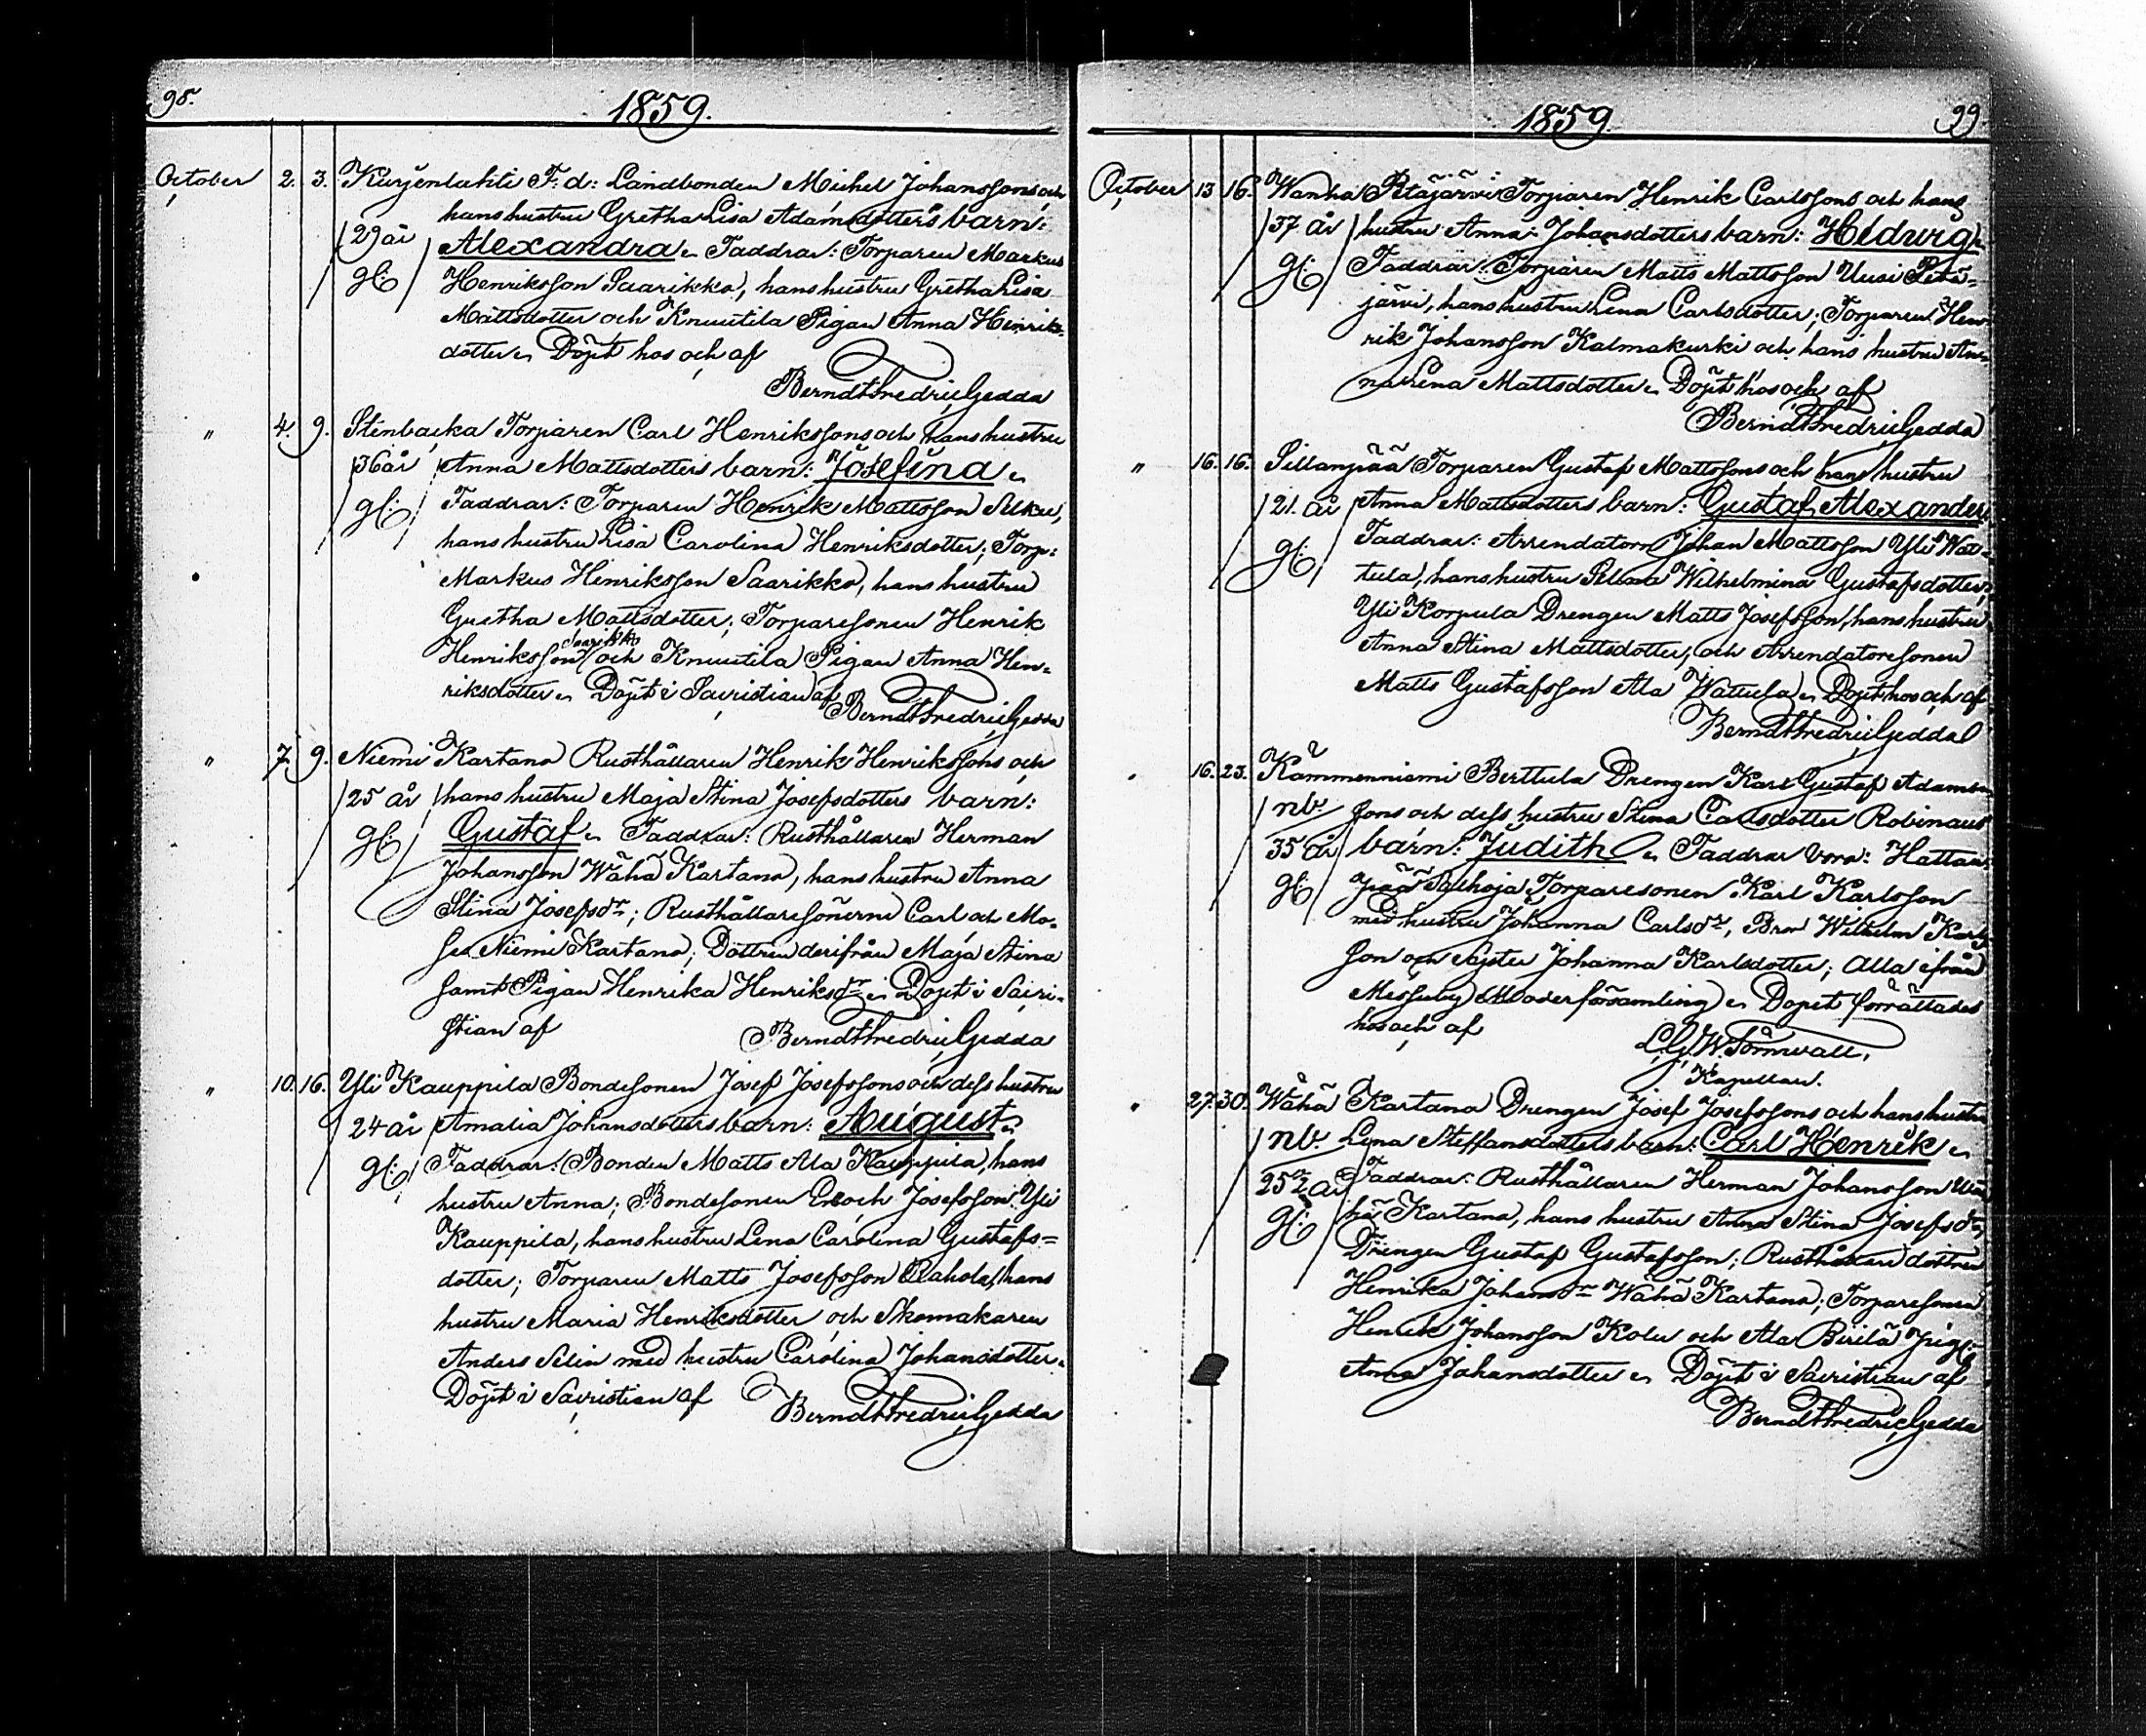 98.
1859.
October 2. 3. Kurjenlahti F. d: Landbonden Michel Johanssons och
hans hustru Gretha Lisa Adamsdotters barn:
/29 år/ Alexandra. Faddrar: Torparen Markus
gl: Henriksson Saarikko, hans hustru Gretha Lisa
Mattsdotter och Knuutila Pigan Anna Henriks-
dotter. Döpt hos och af
Berndt Fredric Gedda
" 4. 9. Stenbacka Torparen Carl Henrikssons och hans hustru
/36 år/ Anna Mattsdotters barn: Josefina.
gl: Faddrar: Torparen Henrik Mattsson Silku,
hans hustru Lisa Carolina Henriksdotter; Torp:
Markus Henriksson Saarikko, hans hustru
Gretha Mattsdotter; Torparesonen Henrik
Saarikko
Henriksson och Knuutila Pigan Anna Hen-
riksdotter. Döpt i Sacristian af
Berndt Fredric Gedda
" 7. 9. Niemi Kartano Rusthållaren Henrik Henrikssons och
/25 år/ hans hustru Maja Stina Josefsdotters barn:
gl: Gustaf. Faddrar: Rusthållaren Herman
Johansson Wähä Kartano, hans hustru Anna
Stina Josefsdr; Rusthållaresönerne Carl och Mo-
ses Niemi Kartano; Dottren derifrån Maja Stina
samt Pigan Henrika Henriksdr. Döpt i Sacri-
stian af
Berndt Fredric Gedda
" 10. 16. Yli Kauppila Bondesonen Josef Josefssons och dess hustru
24 år Amalia Johansdotters barn: August.
gl: Faddrar: Bonden Matts Ala Kauppila, hans
hustru Anna; Bondesonen Enoch Josefsson Yli
Kauppila, hans hustru Lena Carolina Gustafs=
dotter; Torparen Matts Josefsson Rahola, hans
hustru Maria Henriksdotter och Skomakaren
Anders Selin med hustru Carolina Johansdotter.
Döpt i Sacristian af Berndt Fredric Gedda
1859.
99
October 13 16. Wanha Petäjärvi Torparen Henrik Carlssons och hans
/37 år/ hustru Anna Johansdotters barn: Hedwig.
gl: Faddrar: Torparen Matts Mattsson Uusi Petä=
järvi, hans hustru Lena Carlsdotter; Torparen Hen-
rik Johansson Kalmakurki och hans hustru An-
na Lena Mattsdotter. Döpt hos och af
Berndt Fredric Gedda
" 16. 16. Sillanpää Torparen Gustaf Mattssons och hans hustru
/21. år/ Anna Mattsdotters barn: Gustaf Alexander
gl: Faddrar: Arrendatorn Johan Mattsson Yli Wat-
tula, hans hustru Selma Wilhelmina Gustafsdotter;
Yli Korpula Drengen Matts Josefsson, hans hustru
Anna Stina Mattsdotter, och Arrendatoresonen
Matts Gustafsson Ala Wattula. Döpt hos och af
Berndt Fredric Gedda
" 16. 23. Kämmenniemi Berttula Drengen Karl Gustaf Adams
/nb. sons och dess hustru Stina Carlsdotter Robinaus
35 år/ barn: Judith. Faddrar voro: Hattan-
gl: pää Torparesonen Karl Karlsson
med hustru Johanna Carlsdr, Bror Wilhelm Karls
son och Syster Johanna Karlsdotter; Alla ifrån
Messuby Moderförsamling. Dopet förrättades
hos och af
L. G. W. Törnwall,
Kapellan.
" 27. 30. Wähä Kartano Drengen Josef Josefssons och hans hustru
/nb. Lena Steffansdotters barn: Carl Henrik.
25½ år Faddrar: Rusthållaren Herman Johansson Wä
gl: hä Kartano, hans hustru Anna Stina Josefsdr,
Drengen Gustaf Gustafsson; Rusthållare dottren
Henrika Johansdr Wähä Kartano; Torparesonen
Henrik Johansson Kolu och Ala Pirilä pig:
Anna Johansdotter. Döpt i Sacristian af
Berndt Fredric Gedda